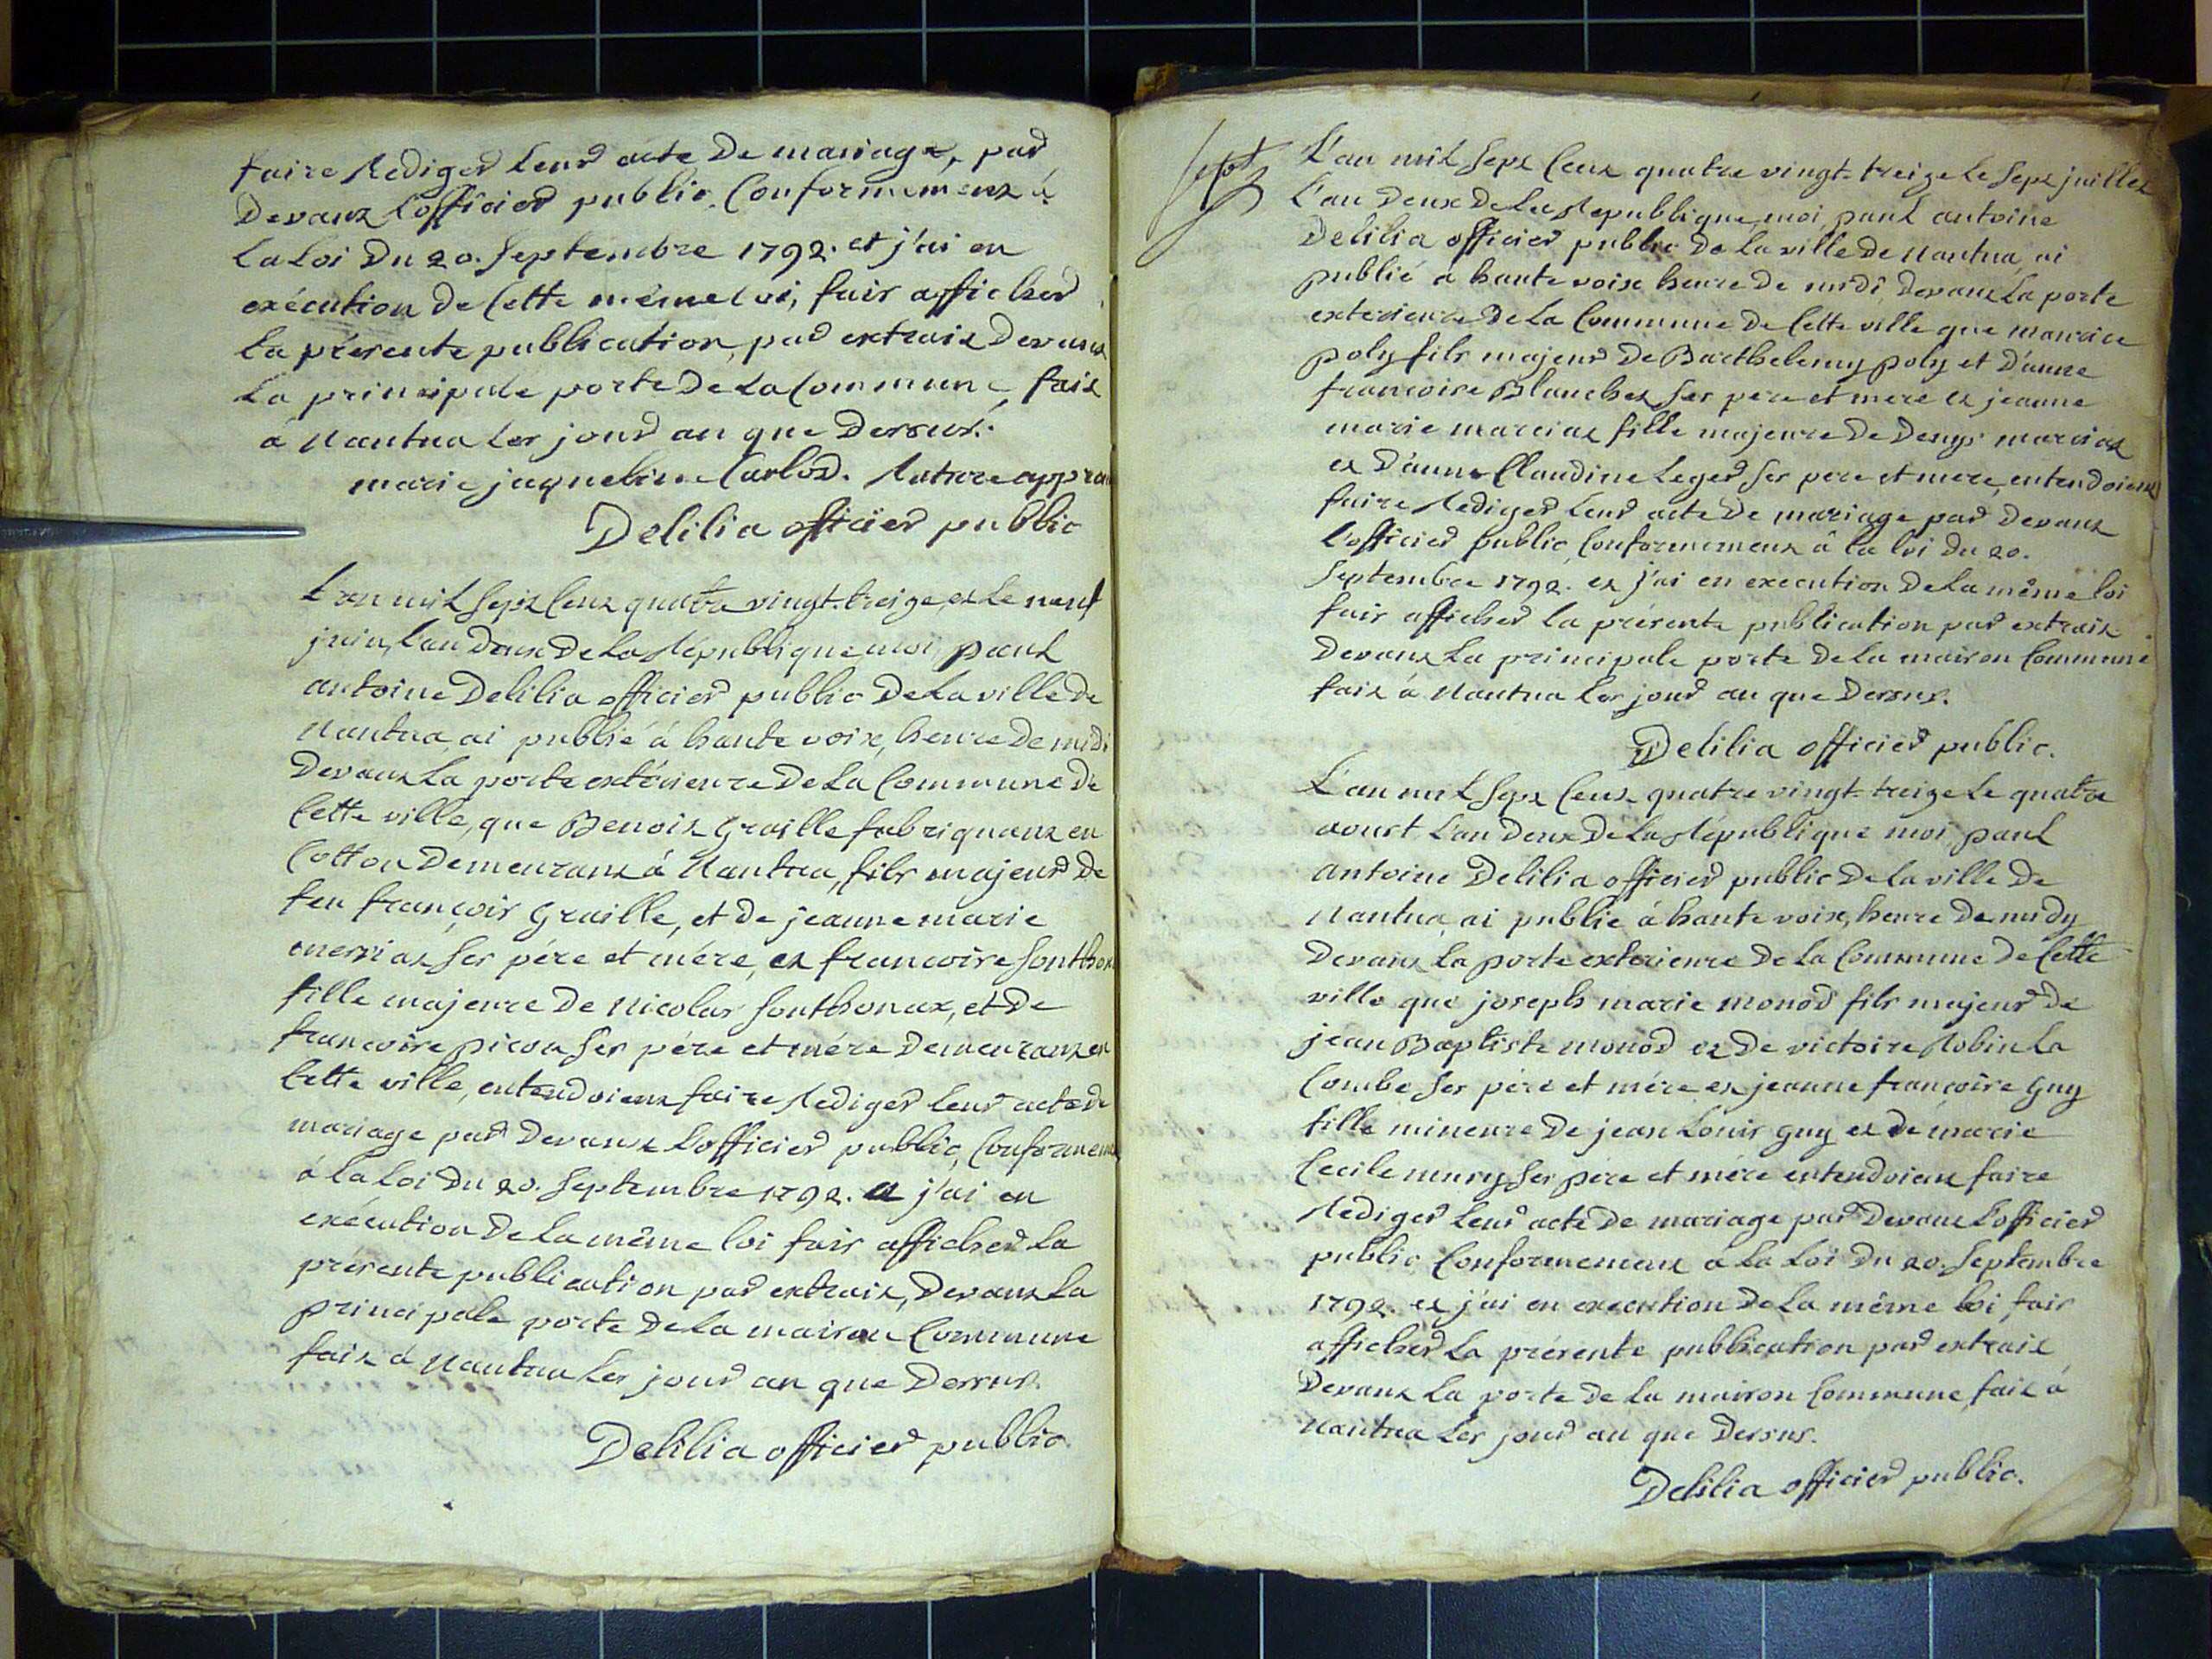 faire Rediger leur acte de mariage, par
devant L'officier public, Conformement à
La Loi du 20. Septembre 1792. et j'ai en
exécution de Cette même Loi, fait afficher
La présente publication, par extrait devant
La principale porte de La Commune, fait
à Nantua Les jour an que dessus.
marie jaqueline Carlod.
Delilia officier public
L'an mil Sept Cent quatre vingt-treize, et Le neuf
juin, L'an deux de La République, moi, paul
antoine Delilia officier public de La ville de
Nantua, ai publié à haute voix, heure de midi
devant La porte extérieure de La Commune de
Cette ville, que Benoit Graille fabriquant en
Cotton demeurant à Nantua, fils majeur de
feu françois Graille, et de jeanne marie
ses pére et mére, et francoise
fille majeure de Nicolas Sonthonax, et de
francoise picon Ses pére et mére demeurant en
Cette ville, entendoient faire Rediger leur acte de
mariage par devant L'officier public,
à la Loi du 20. Septembre 1792. et j'ai en
exécution de La même loi fait afficher La
présente publication par extrait, devant La
principale porte de La maison Commune
fait à Nantua Les jour an que dessus.
Delilia officier public
L'an mil Sept Cent quatre vingt-treize Le Sept juillet
L'an deux de La République, moi, paul antoine
Delilia officier public de La ville de Nantua, ai
publié à haute voix heure de midi, devant La porte
exterieure de La Commune de Cette ville que maurice
poly fils majeur de Barthelemy poly et d'anne
francoise Blanchet ses pere et mere et jeanne
marie marciat fille majeure de Denys marciat
et d'anne Claudine Leger ses pere et mere, entendoient
faire Rediger leur acte de mariage par devant
L'officier public, Conformement à la loi du 20.
Septembre 1792. et j'ai en execution de La même loi
fait afficher la présente publication par extrait
devant La principale porte de La maison Commune
fait à Nantua Les jour an que dessus.
Delilia officier public.
L'an mil Sept Cent quatre vingt-treize Le quatre
aoust L'an deux de La République moi, paul
antoine Delilia officier public de La ville de
Nantua, ai publié à haute voix, heure de midy
devant La porte exterieure de La Commune de Cette
ville que joseph marie monod fils majeur de
jean Baptiste monod et de victoire Robin La
Combe ses pére et mére et jeanne francoise Guy
fille mineure de jean Louis Guy et de marie
Cecile mury ses pére et mére entendoient faire
Rediger leur acte de mariage par devant L'officier
public Conformement à La Loi du 20. Septembre
1792. et j'ai en execution de La même loi, fait
afficher La présente publication par extrait
devant La porte de La maison Commune, fait à
Nantua Les jour an que dessus.
Delilia officier public.